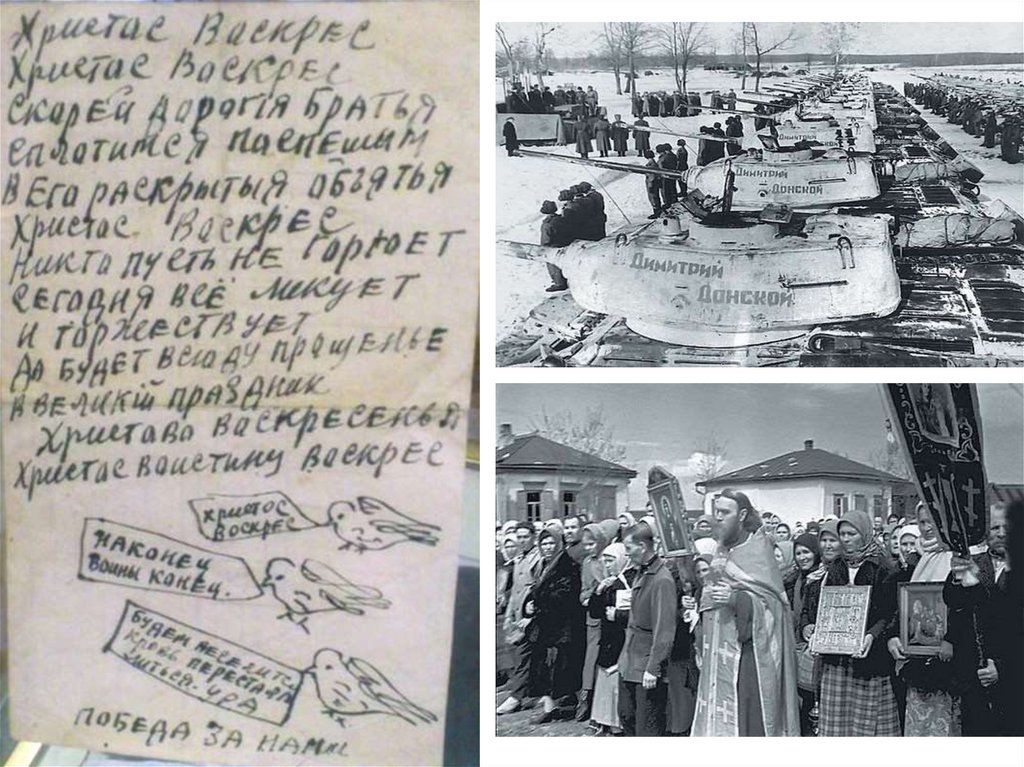 Христас Васкрес
Христас Васкрес
Скорей дарагія братья
сплотимся паспешим
В Его раскрытыя абъятья
Христас Васкрес
Никто пусть не горюет
Сегодня всё ликует
И торжествует
Да будет всюду прощенье
В великій праздник
Христава Васкресенья
Христас ваистину васкрес
Христос
Воскрес
Наконец
Войны конец.
Будем веселитс
кровь перестала
литься. Ура
Победа за нами
Димитрий
Димитрий
Донской
Димитрий
Донской